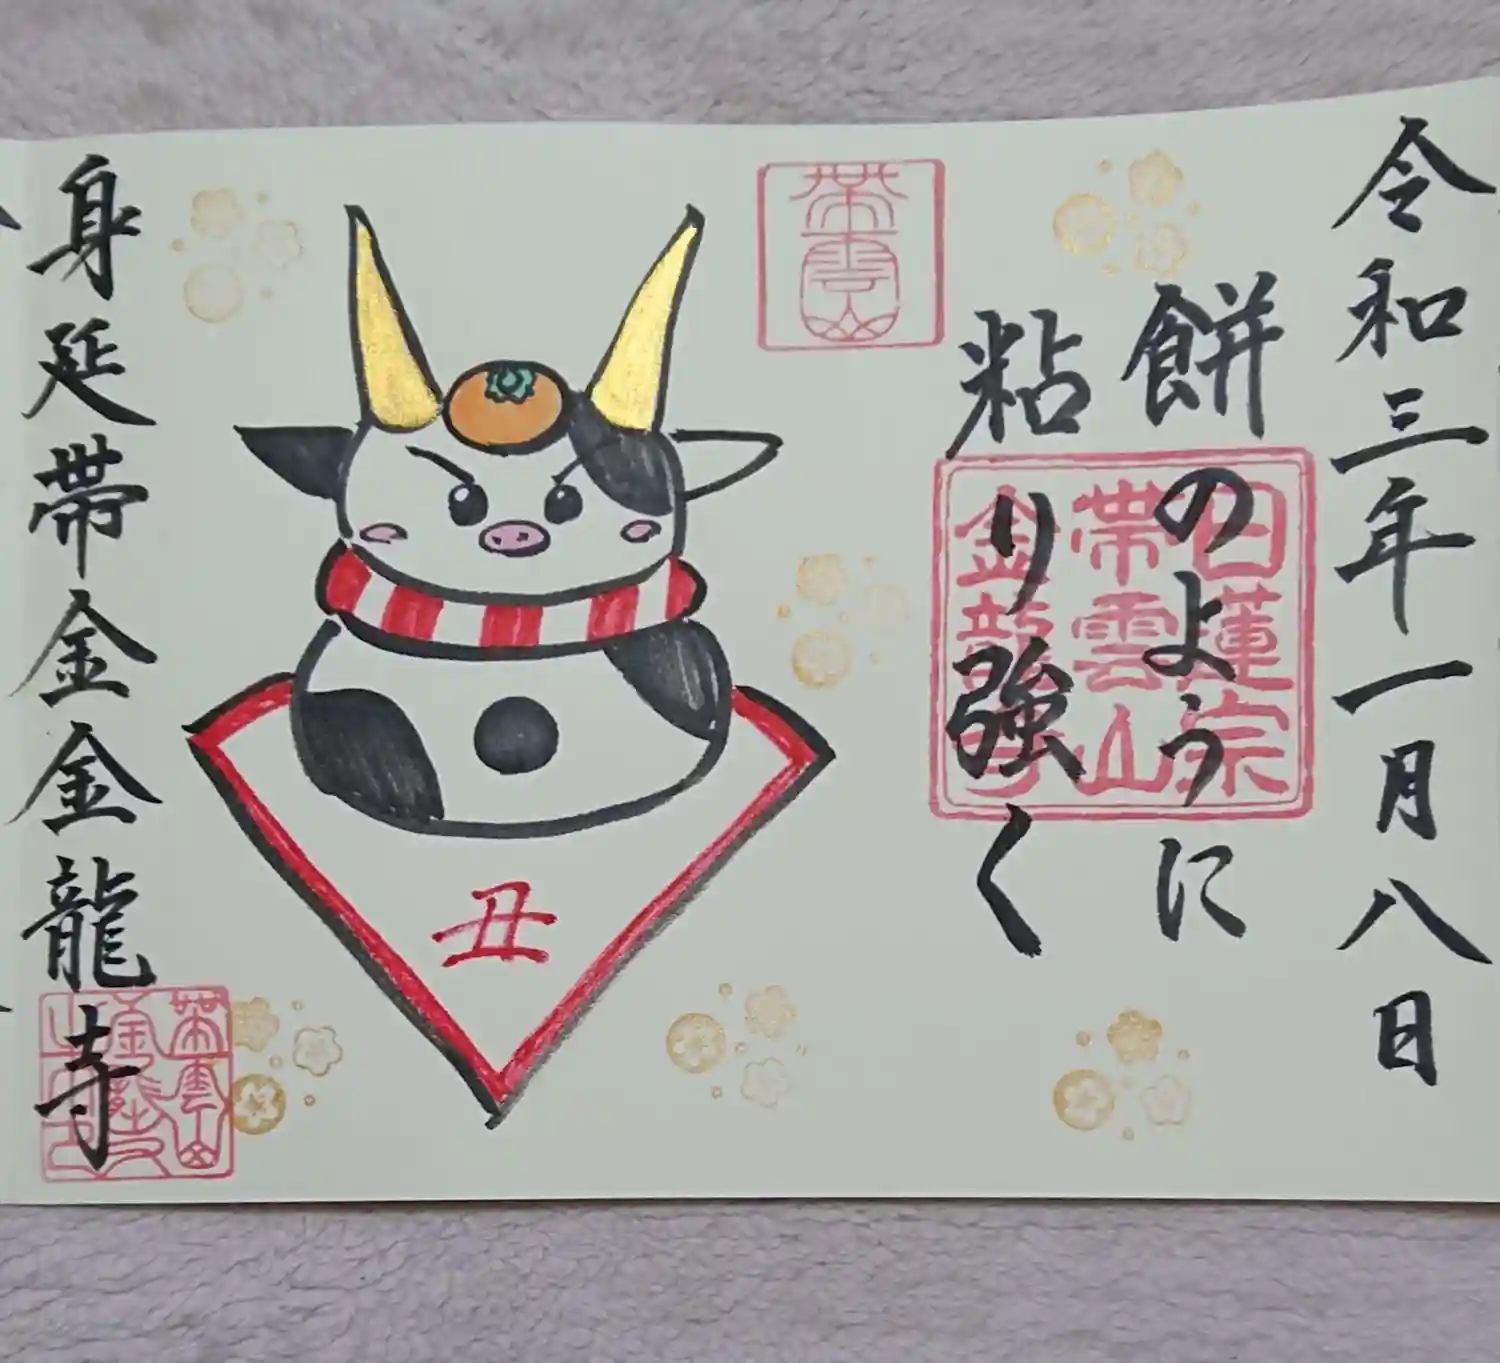 令和三年一月八日
餅のように
粘り強く
帯雲山
日蓮宗
帯雲山
金龍寺
丑
身延帯金金龍寺
帯雲山